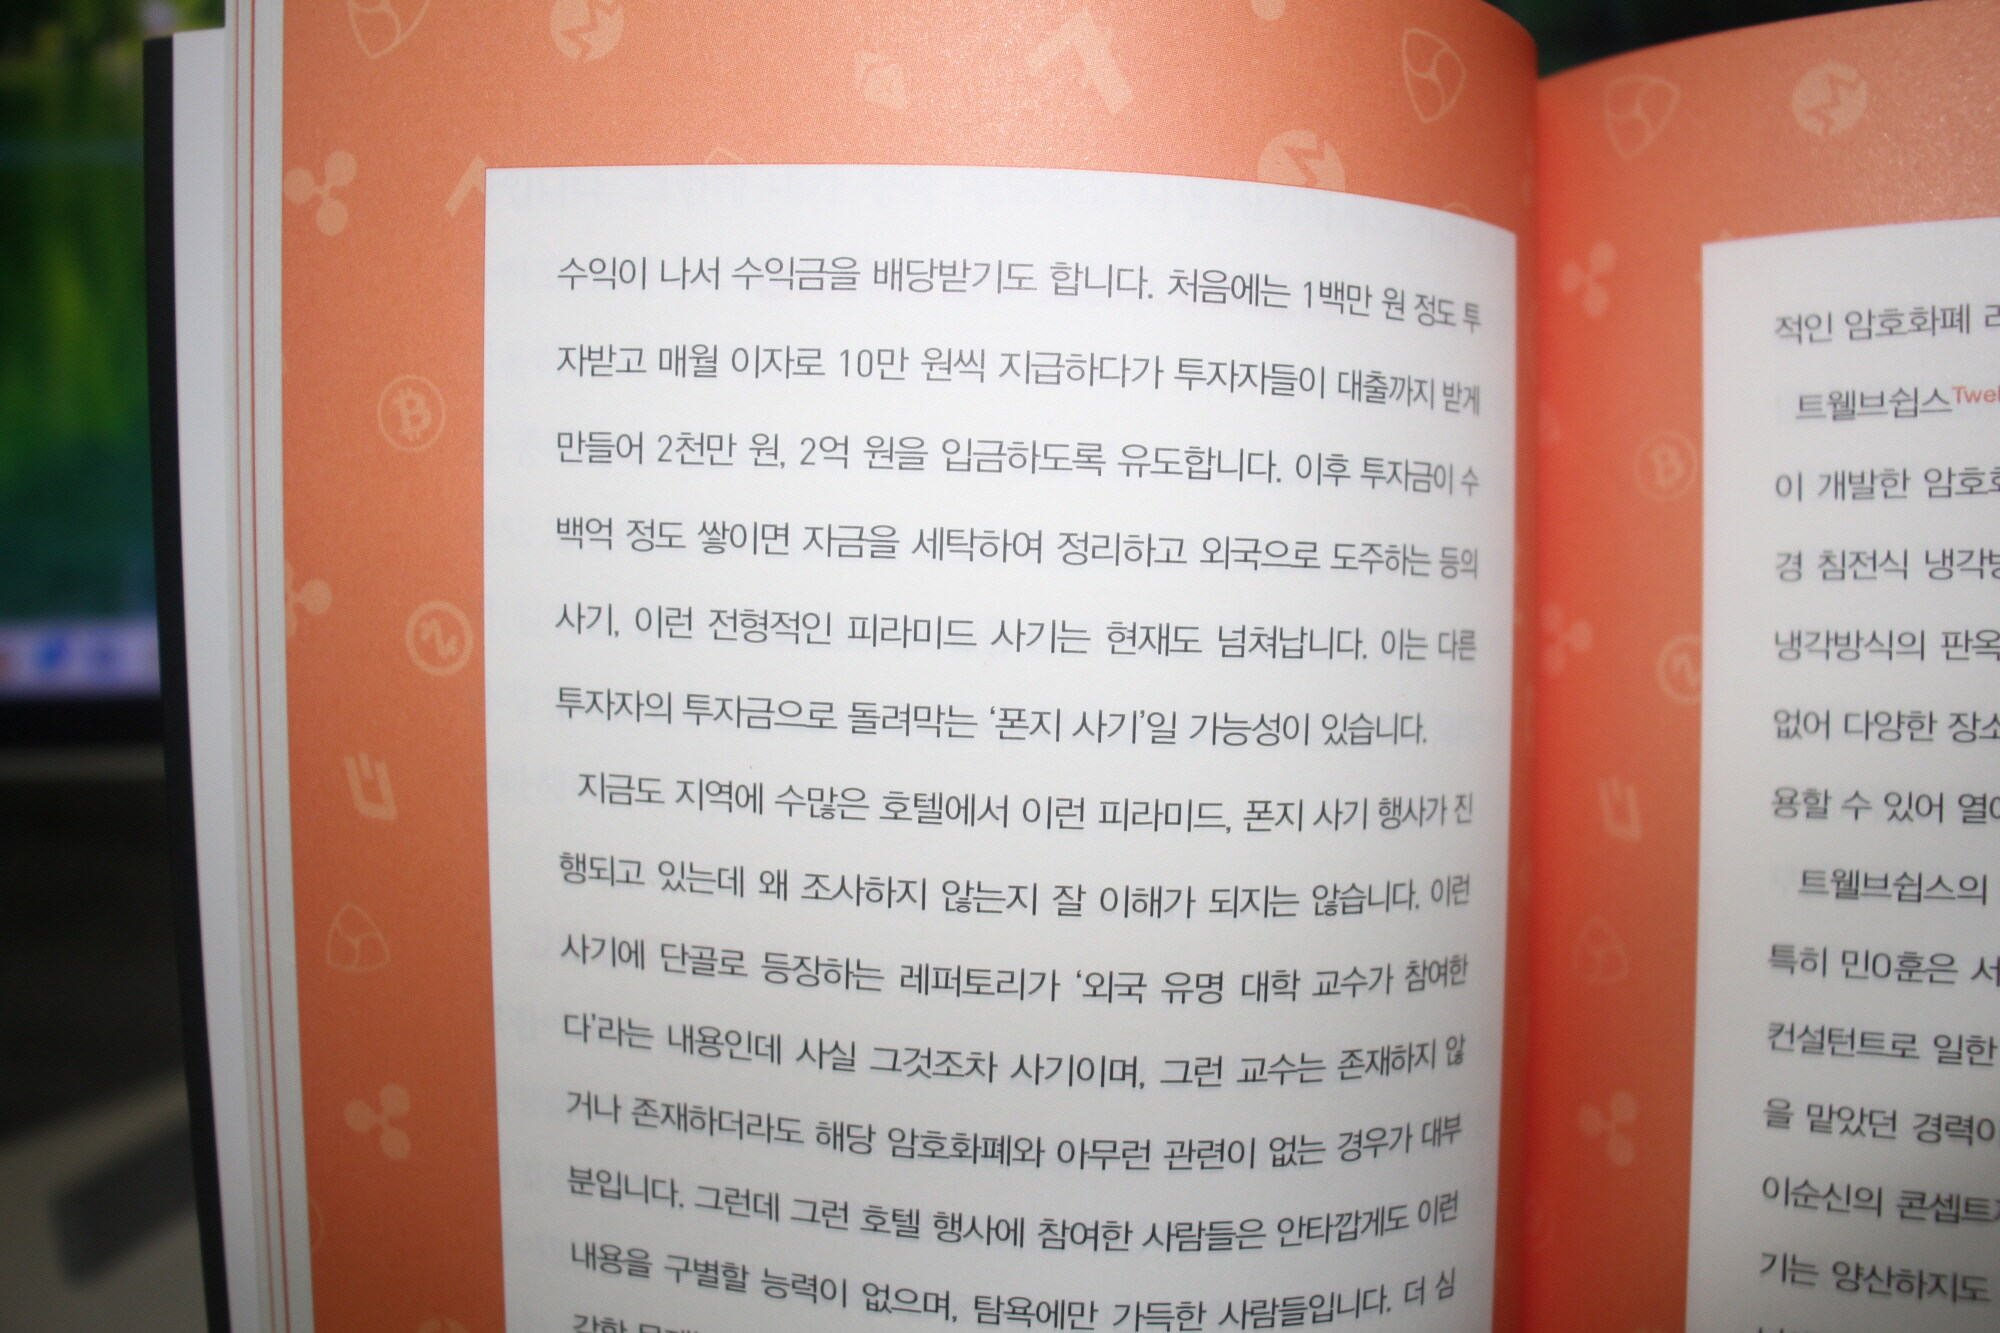 수익이 나서 수익금을 배당받기도 합니다. 처음에는 1백만 원 정도 투
자받고 매월 이자로 10만 원씩 지급하다가 투자자들이 대출까지 받게
만들어 2천만 원, 2억 원을 입금하도록 유도합니다. 이후 투자금이 수
백억 정도 쌓이면 자금을 세탁하여 정리하고 외국으로 도주하는 등의
사기, 이런 전형적인 피라미드 사기는 현재도 넘쳐납니다. 이는 다른
투자자의 투자금으로 돌려막는 ‘폰지 사기’일 가능성이 있습니다.
지금도 지역에 수많은 호텔에서 이런 피라미드, 폰지 사기 행사가 진
행되고 있는데 왜 조사하지 않는지 잘 이해가 되지는 않습니다. 이런
사기에 단골로 등장하는 레퍼토리가 ‘외국 유명 대학 교수가 참여한
다’라는 내용인데 사실 그것조차 사기이며, 그런 교수는 존재하지 않
거나 존재하더라도 해당 암호화폐와 아무런 관련이 없는 경우가 대부
분입니다. 그런데 그런 호텔 행사에 참여한 사람들은 안타깝게도 이런
내용을 구별할 능력이 없으며, 탐욕에만 가득한 사람들입니다. 더 심
적인 암호화폐
트웰브쉽스
이 개발한
경 침전식
냉각방식의
없어 다양한
용할 수 있어
트웰브쉽스의
특히 민O훈은
컨설턴트로 일한
을 맡았던
이순신의
기는 양산하지도